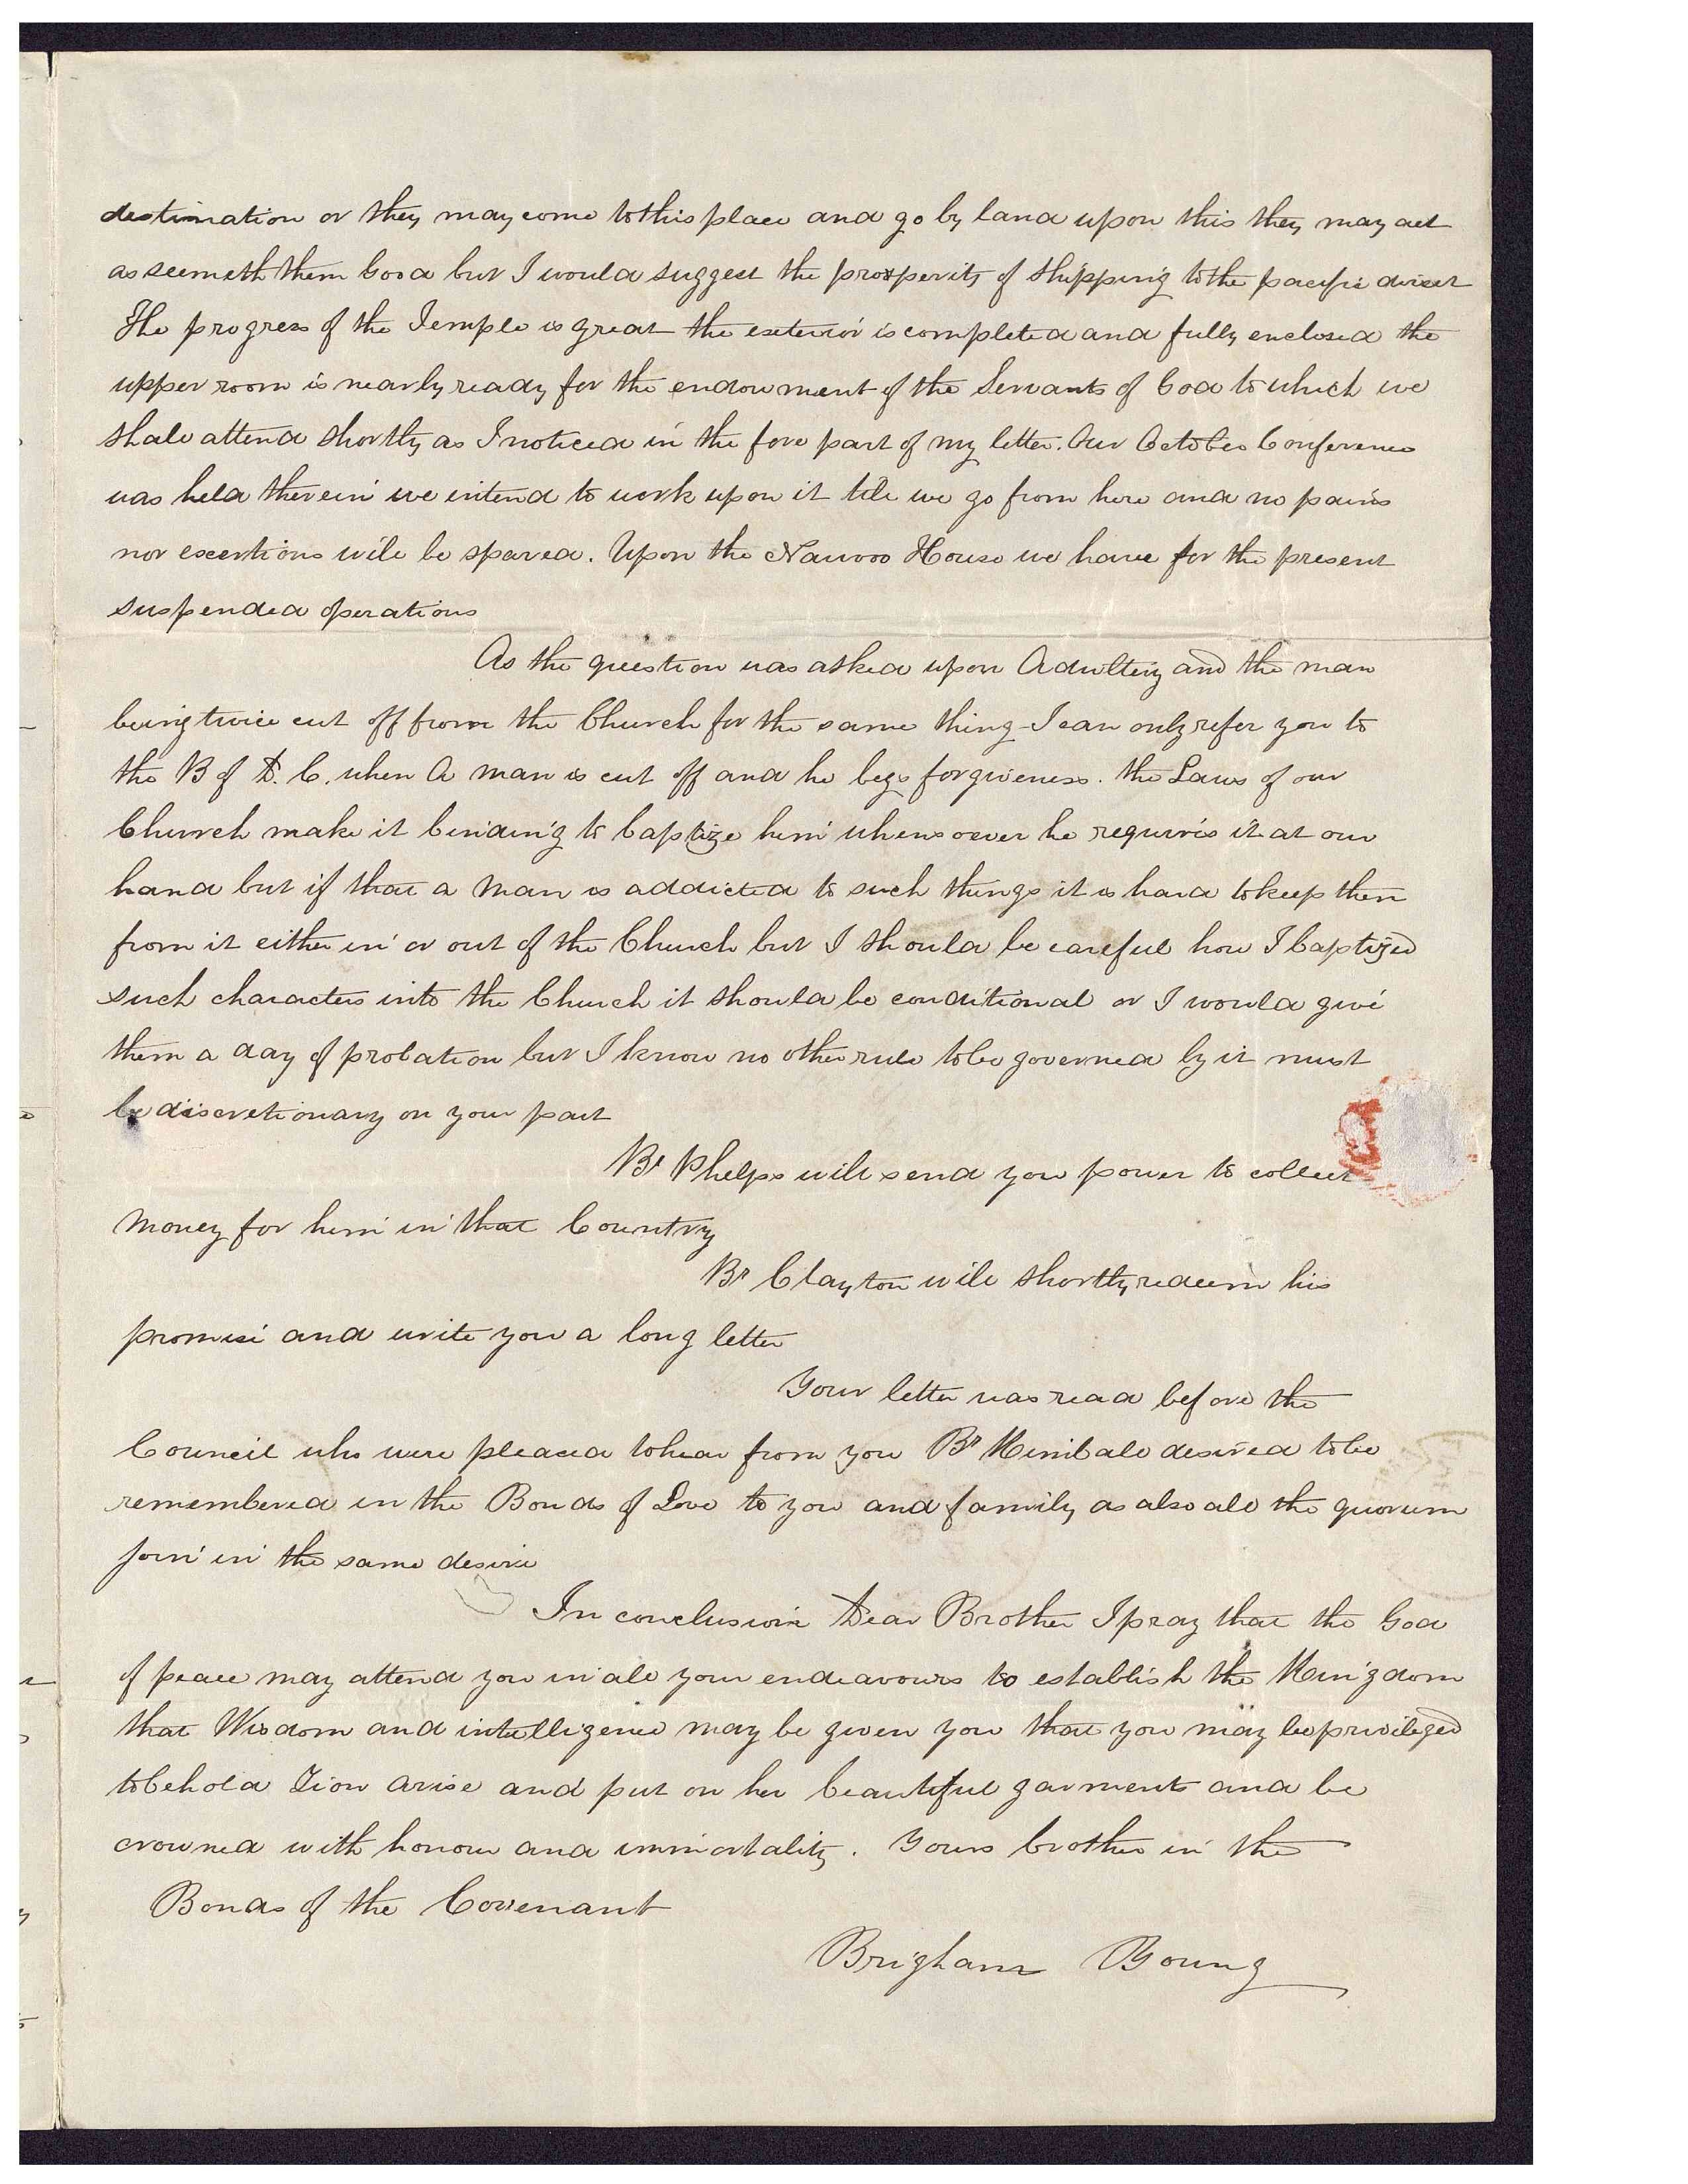 destination or they may come to this place and go by land upon this they may act
as seemeth them Good but I would suggest the prosperity of shipping to the pacific direct
The progress of the Temple is great the exterior is completed and fully enclosed the
upper room is nearly ready for the endowment of the Servants of God to which we
shall attend shortly as I noticed in the fore part of my letter. Our October Conference
was held therein we intend to work upon it till we go from here and no pains
nor exertions will be spared. Upon the Nauvoo House we have for the present
suspended operations
As the question was asked upon Adultery and the man
being twice cut off from the Church for the same thing - I can only refer you to
the B of D. C. when a man is cut off and he begs forgiveness. the Laws of our
Church make it binding to baptize him whensoever he requires it at our
hand but if that a man is addicted to such things it is hard to keep them
from it either in or out of the Church but I should be careful how I baptized
such characters into the Church it should be conditional or I would give
them a day of probation but I know no other rule to be governed by it must
be discretionary on your part
Br Phelps will send you power to collect
money for him in that Country
Br Clayton will shortly redeem his
promise and write you a long letter
Your letter was read before the
Council who were pleased to hear from you Br Kimball desired to be
remembered in the Bonds of Love to you and family as also all the quorum
join in the same desire
In conclusion Dear Brother I pray that the God
of peace may attend you in all your endeavours to establish the Kingdom
that Wisdom and intelligence may be given you that you may be privileged
to behold Zion arise and put on her beautiful garments and be
crowned with honour and immortality. Yours brother in the
Bonds of the Covenant
Brigham Young